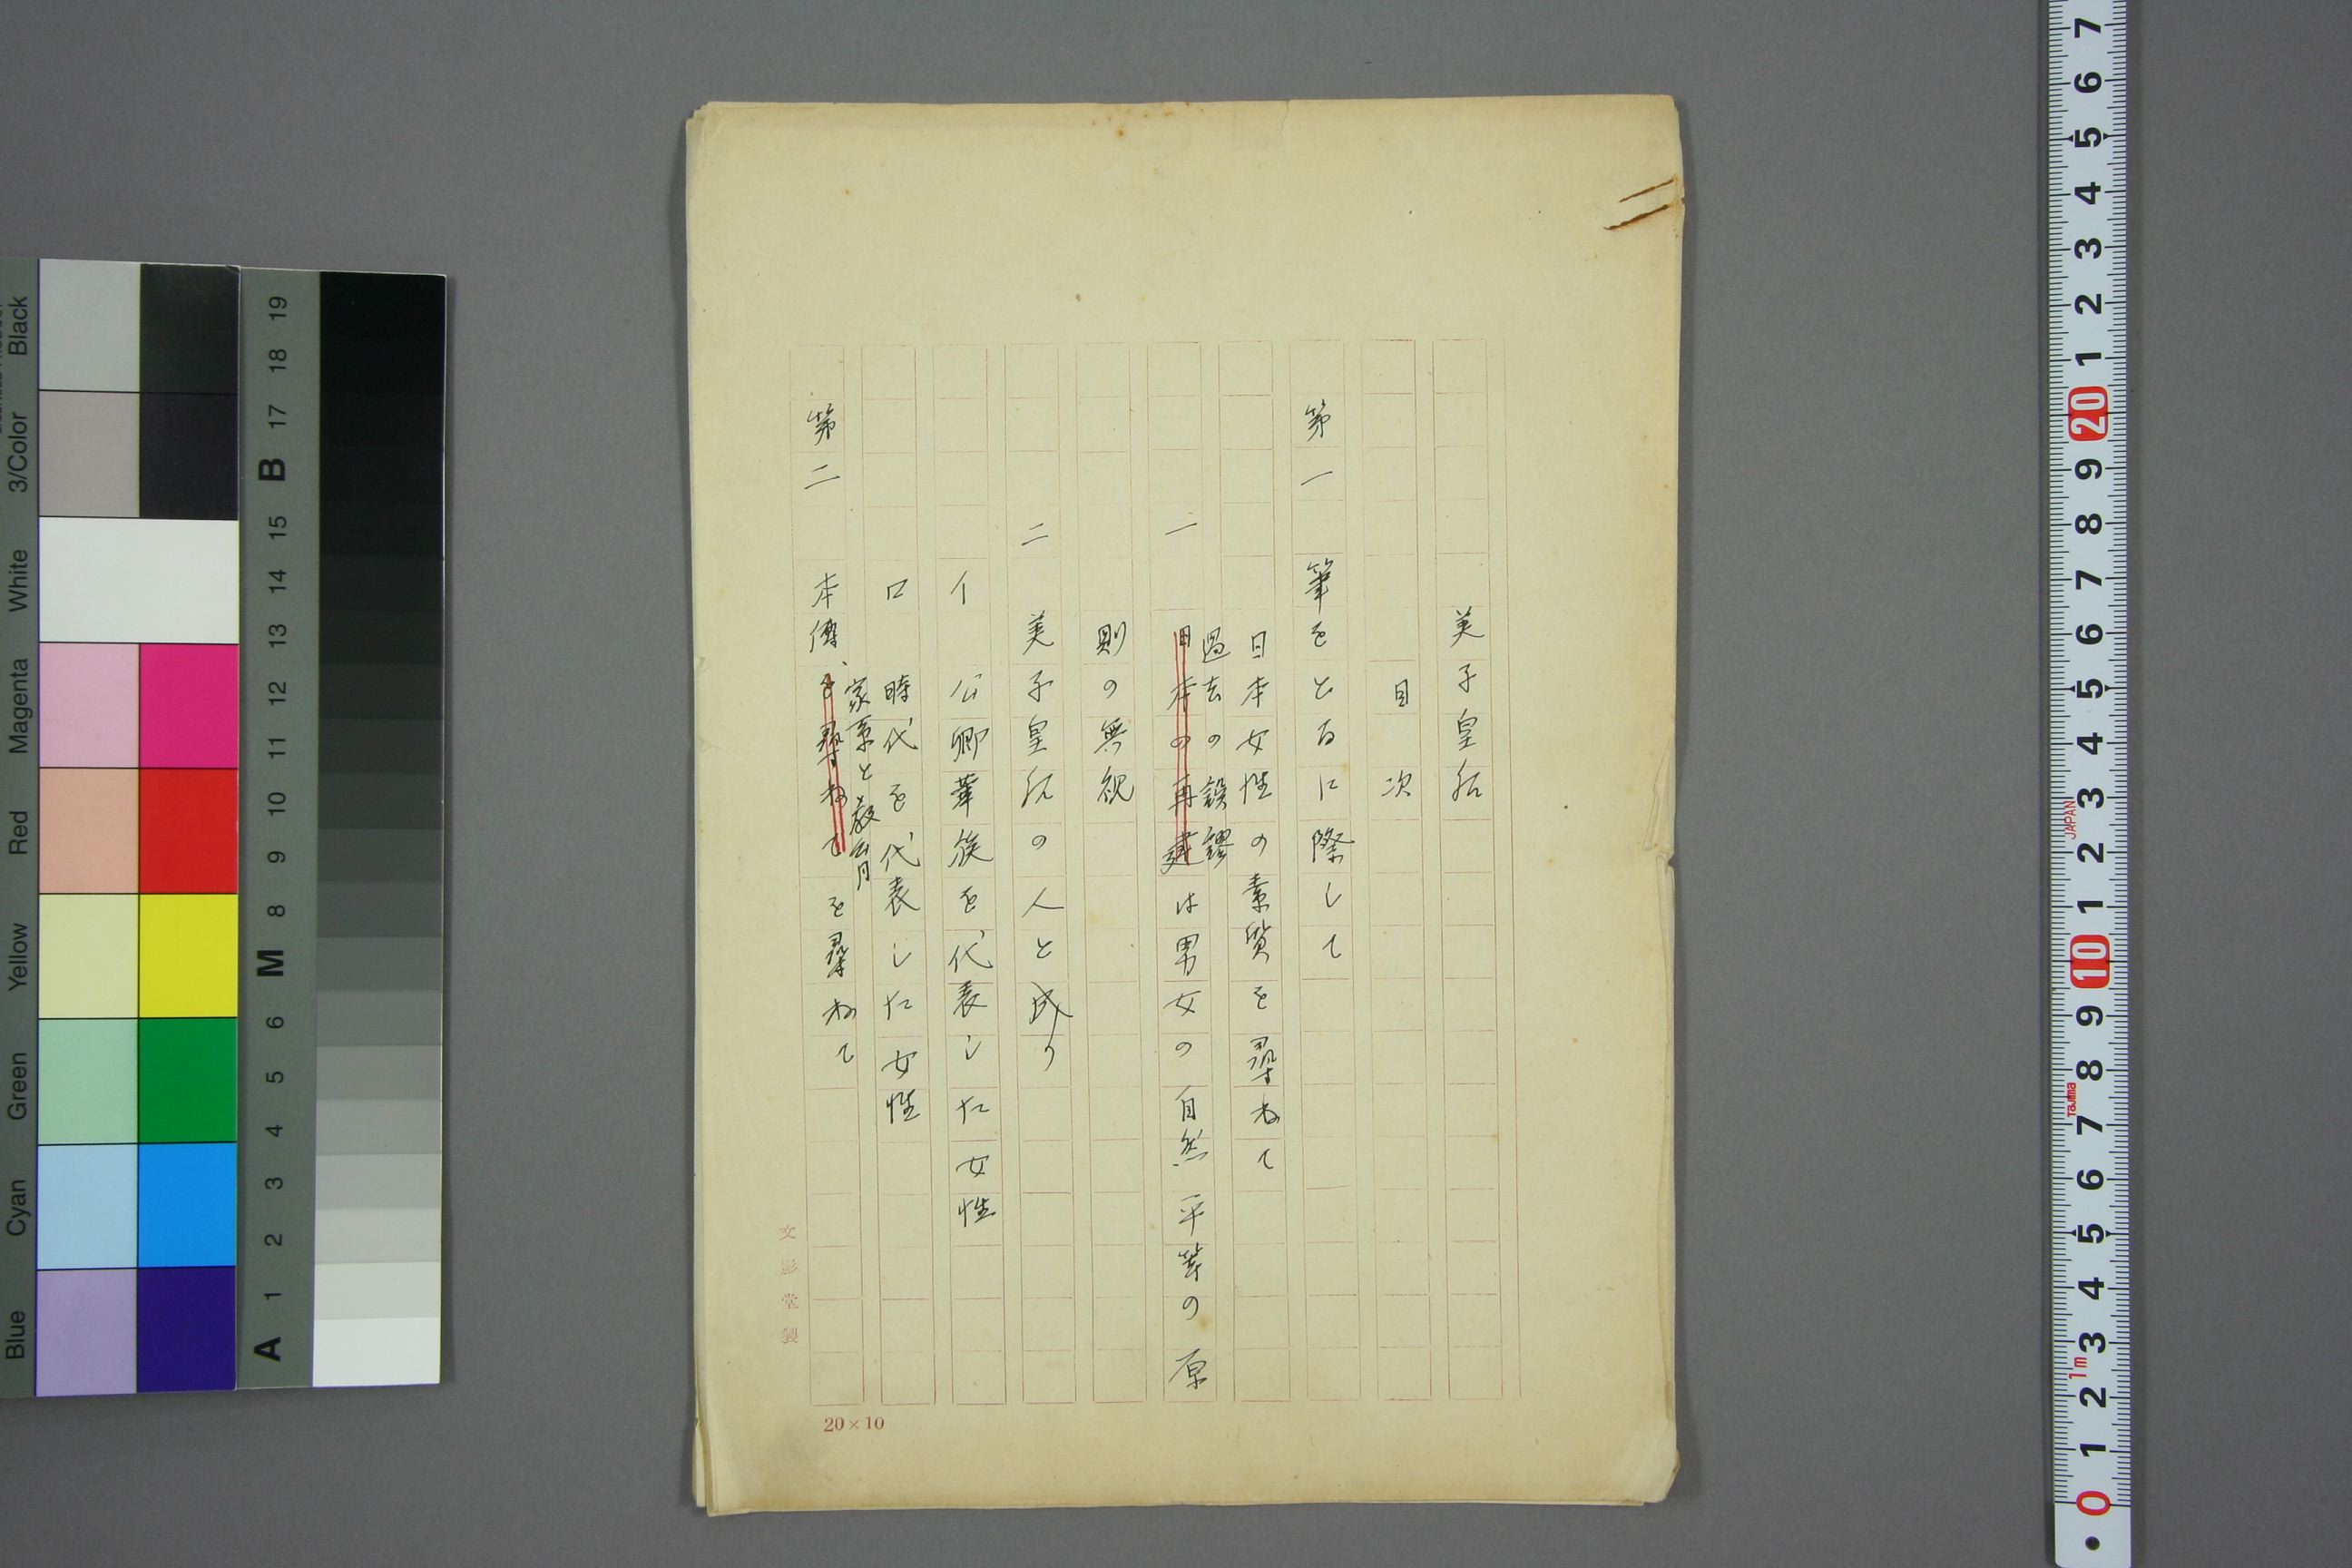 美子皇后
目次
第一 筆をとるに際して
日本女性の素質を尋ねて
過去の誤謬
一 日本の再建は男女の自然平等の原
則の無視
二 美子皇后の人と成り
イ 公卿華族を代表した女性
ロ 時代を代表した女性
家系と教育
第二 本傳、を尋ねてを尋ねて
文影堂製
20×10
Blue Cyan Green Yellow Red Magenta White 3/Color Black
A 1 2 3 4 5 6 M 8 9 10 11 12 13 14 15 B 17 18 19
0 1 2 3 4 5 6 7 8 9 10 1 2 3 4 5 6 7 8 9 20 1 2 3 4 5 6 7
1m
Tajima
JAPAN